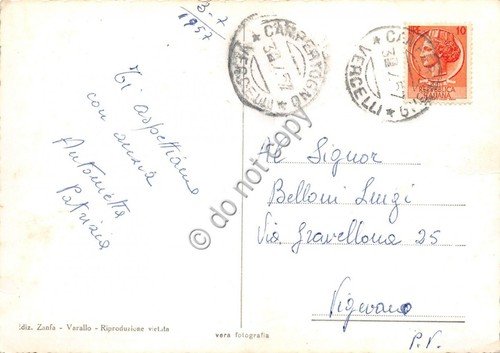 3-7
1957
Ti aspettiamo
con ansia
Antonietta
Patrizia
CAMPERTOGNO
VERCELLI
VERCELLI
10
REPUBBLICA
ITALIANA
Al Signor
Belloni Luigi
Via Gravellona 25
Vigevano
P.V.
Ediz. Zanfa - Varallo - Riproduzione vietata
vera fotografia
do not copy